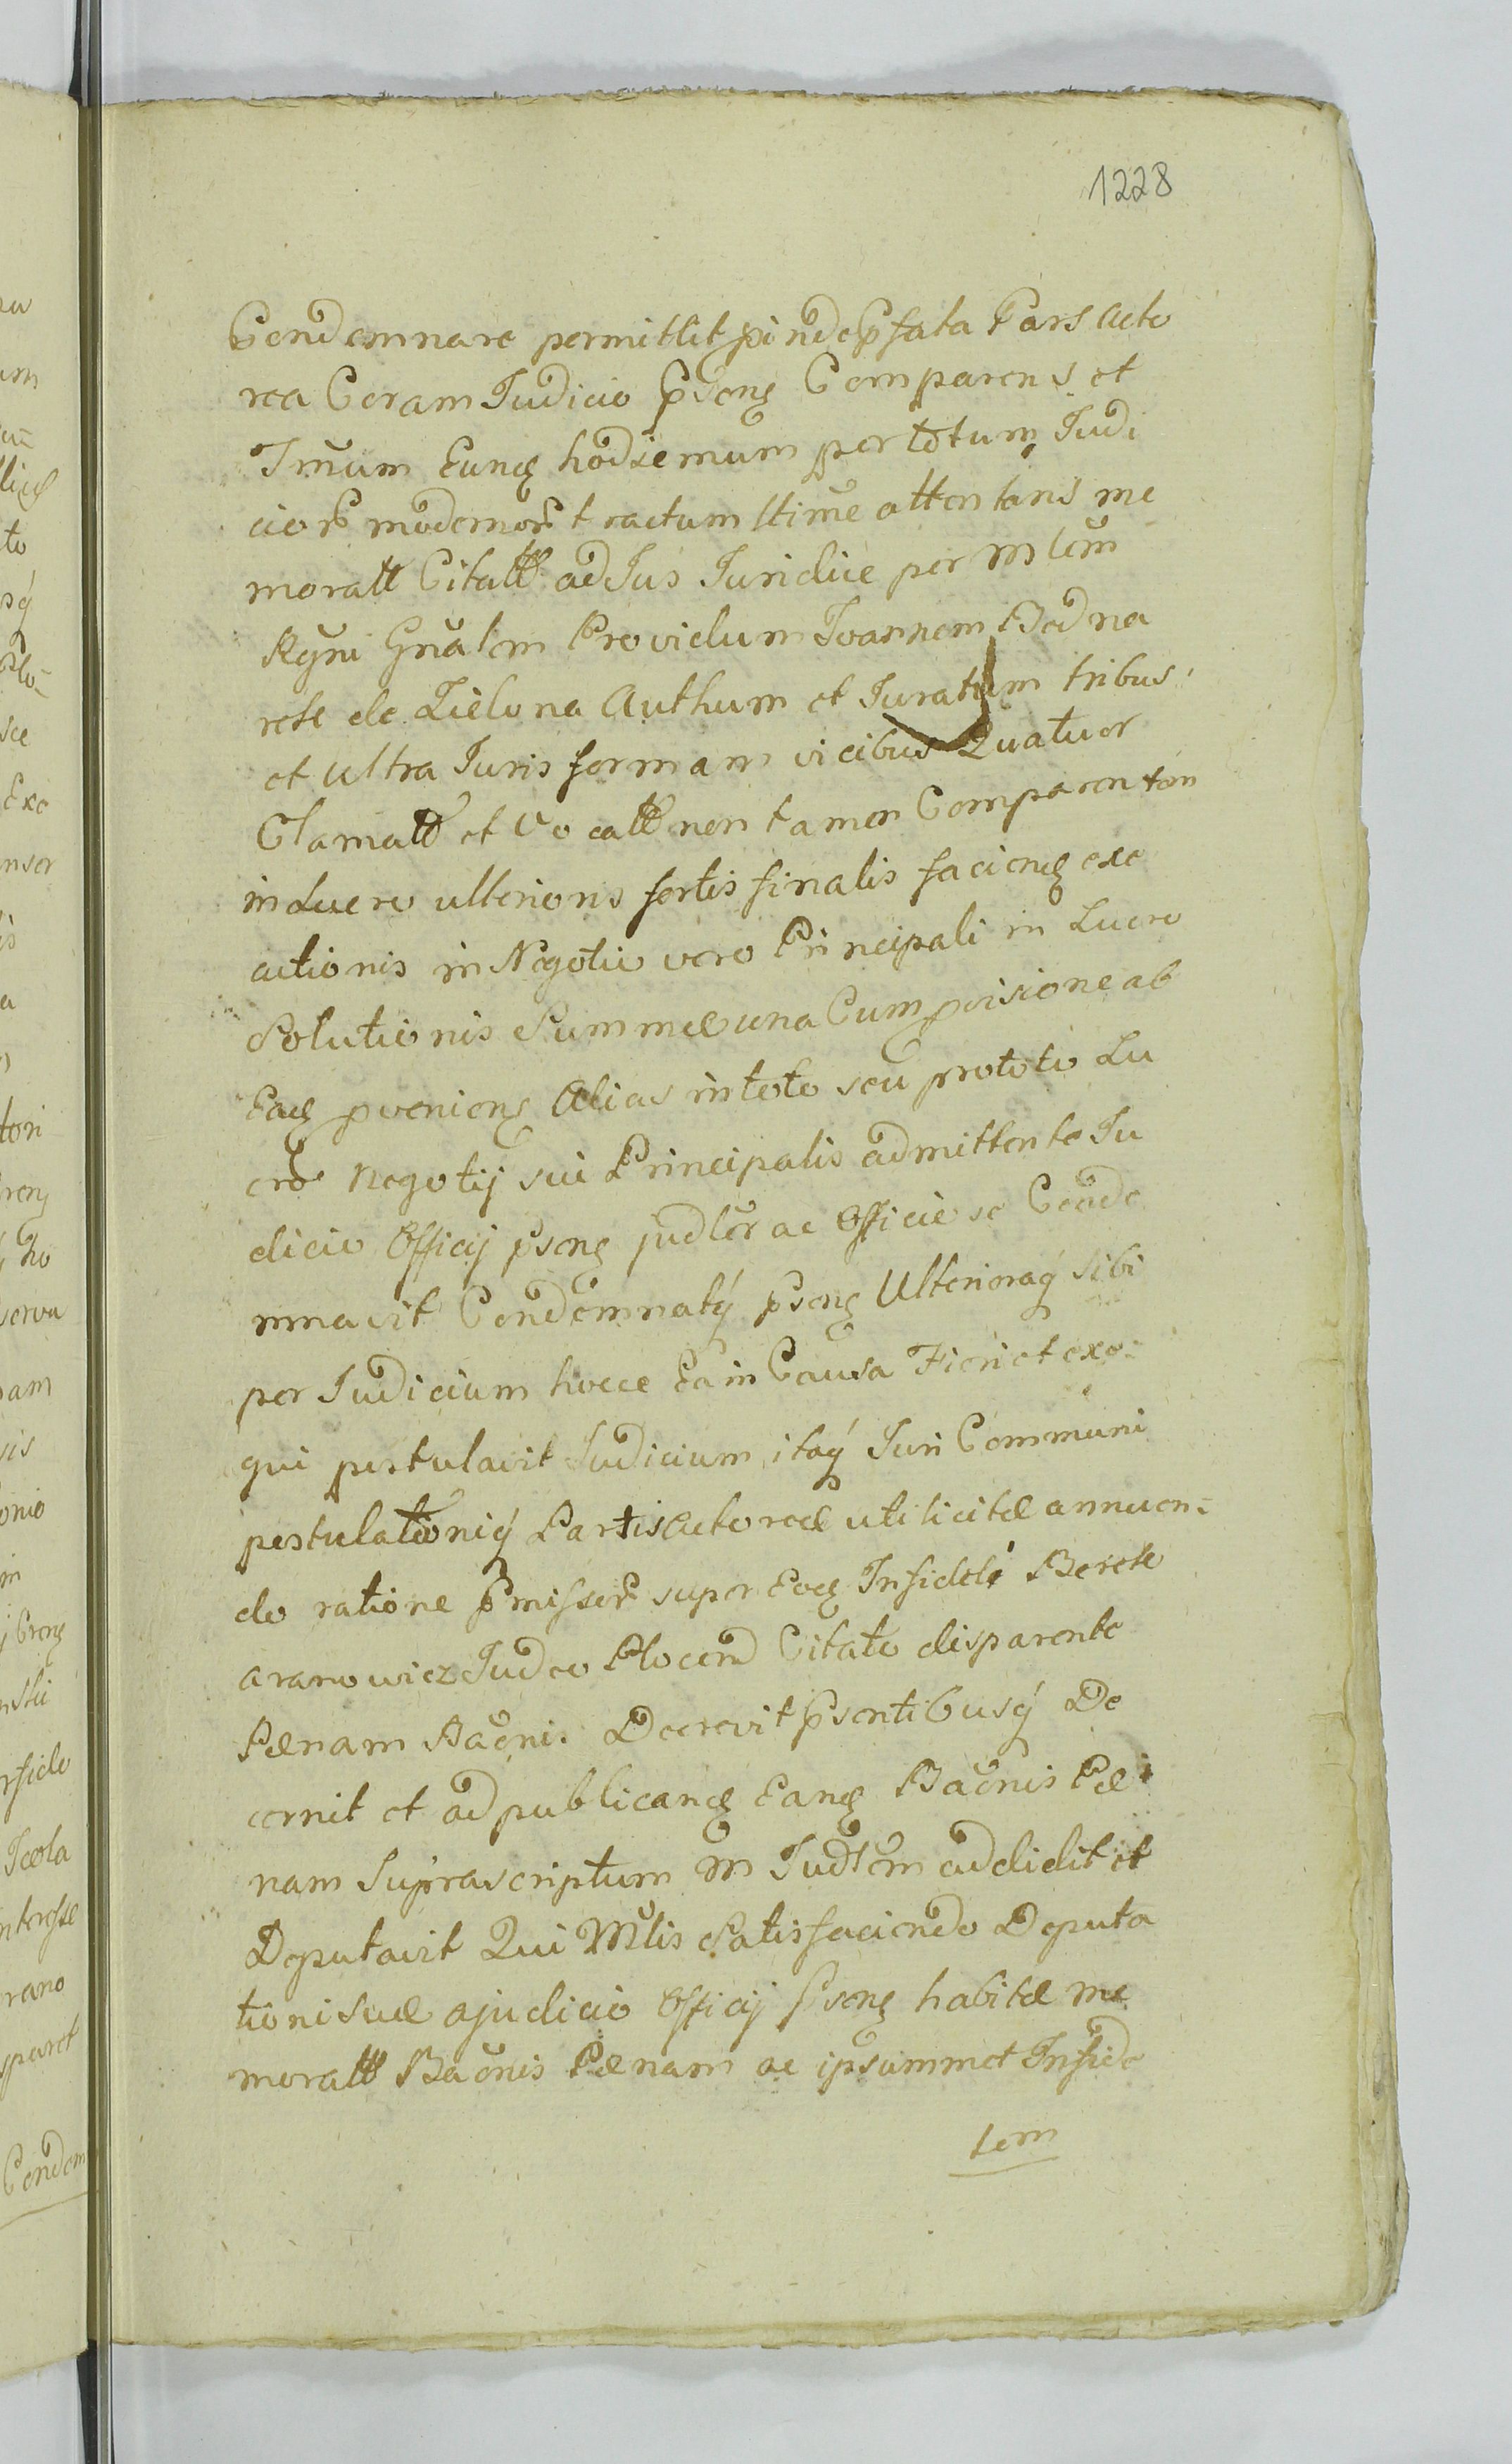 1228
Condemnare permittit proinde pfata Pars Acto
rea Coram Judicio pseng Comparens et
Trnum Eung hodiernum per totum Judi
ciorũ modernorũ tractum ltime attentans me
moratt Citatt ad Jus Juridice per Mlem
Rgni Gnalem Providum Joannem Bedna
rek de Zielona Authum et Juratum tribus
et ultra Juris formam vicibus Quatuor
Clamatt et Vocatt non tamen Comparentem
in Lucro ulterioris fortis finalis facieng exe
cutionis in Negotio vero Principali in Lucro
Solutionis Summæ una Cum provisione ab
Eag provenieng Alias in toto seu pro toto Lu
cro Negotij sui Principalis admittente Ju
dicio Officij pseng judler ac Officiose Conde
mnavit Condemnatq pseng Ulterioraq sibi
per Judicium hocce Ea in Causa Fieri et exe-
qui postulavit Judicium itaq Juri Communi
postulationiq Partis Actoreæ uti licitæ annuen-
do ratione pmissorũ super Eog Infideli Berek
Aronowicz Judeo Plocen Citato disparente
Pænam Baonis Decrevit psentibusq De
cernit et ad publicang Eang Baonis Pæ
nam Suprascriptum M Judlem addidit et
Deputavit Qui Mtlis Satisfaciendo Deputa
tioni suæ a judicio Officij pseng habitæ me
moratt Baonis Pænam ac ipsummet Infide
lem